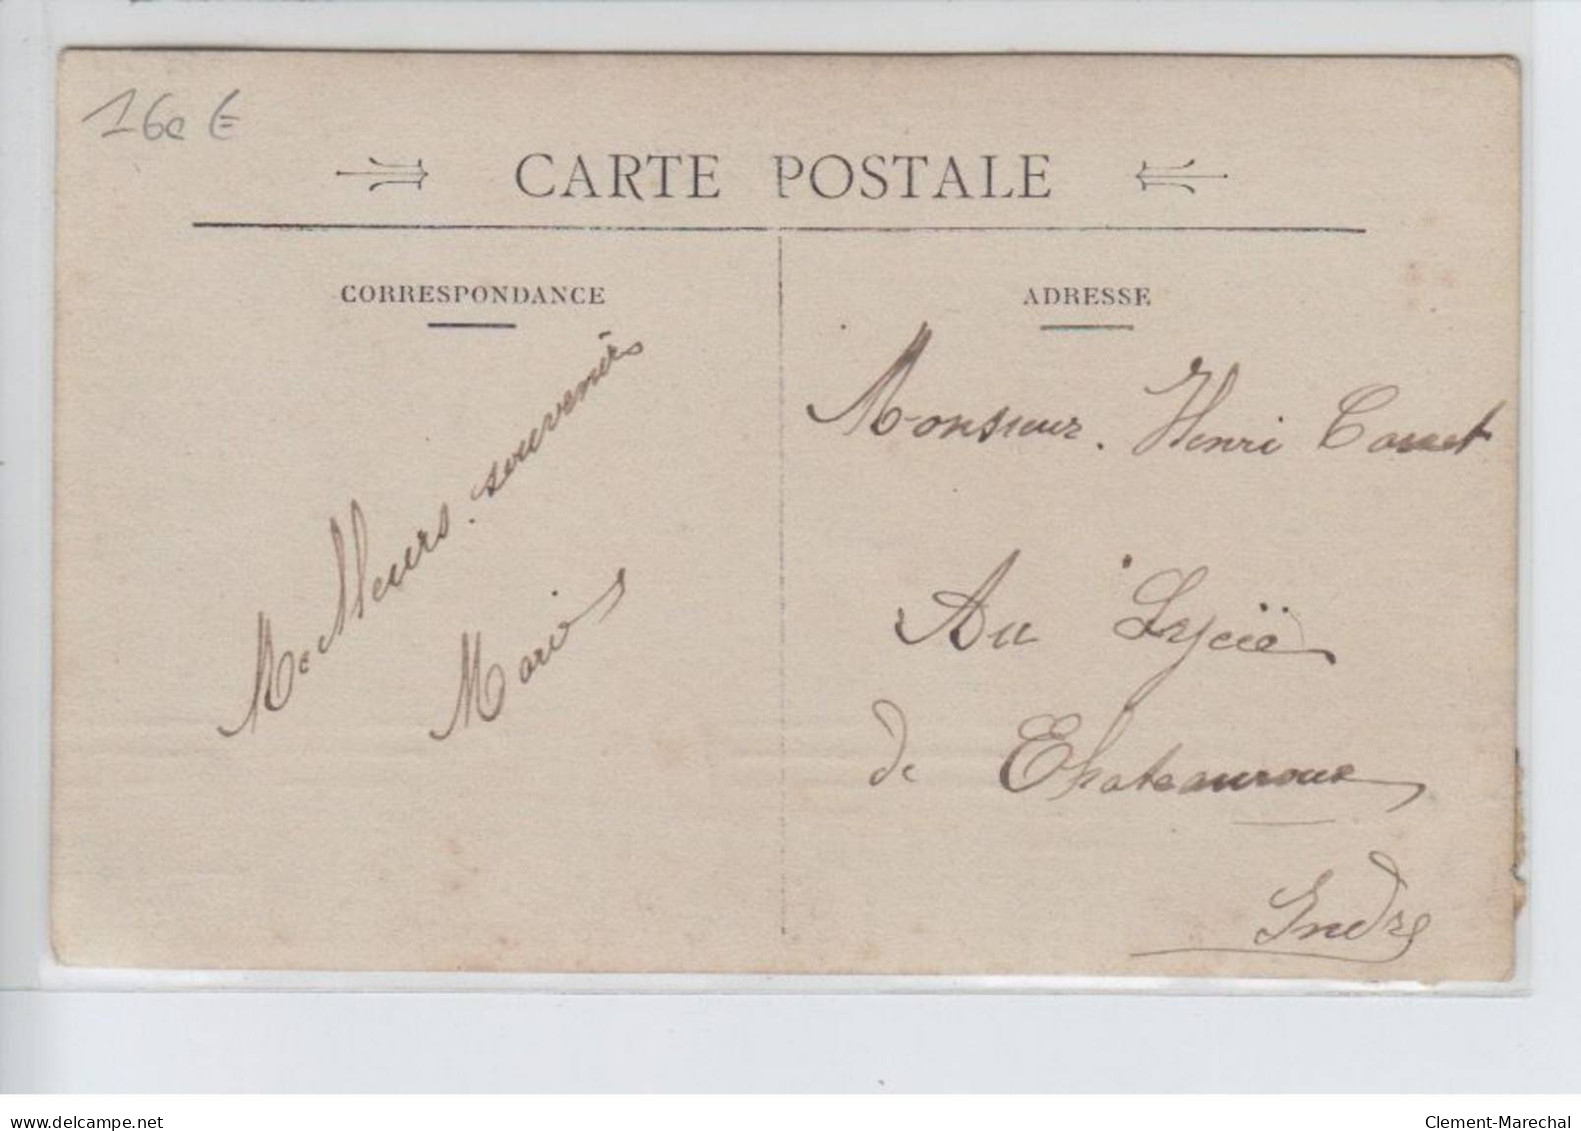 CARTE POSTALE
CORRESPONDANCE
Meilleurs souvenirs
ADRESSE
Monsieur. Henri
Au Lycée
de Chateauroux
Indre
www.delcampe.net
Clement-Marechal